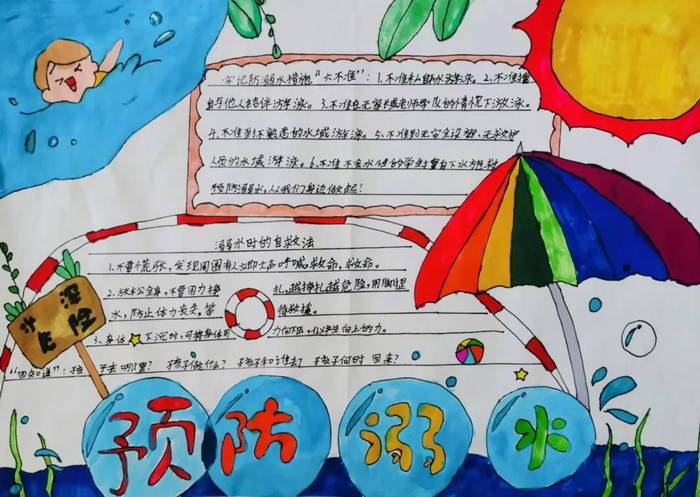 牢记防溺水措施“六不准”：1.不准私自下水游泳。2.不准擅
自与他人结伴游泳。3.不准在无家长或老师带队的情况下游泳。
4.不准到不熟悉的水域游泳。5.不准到无安全设施、无救护
人员的水域游泳。6.不准不会水性的学生擅自下水施救
预防溺水，从我们身边做起！
溺水时的自救法
1.不要慌张，发现周围有人立即大声呼喊救命，救命。
2.放松全身，不要用力挣扎，越挣扎越危险，用脚踢
水，防止体力丧失，等待救援。
3.身体下沉时，可将
力向下压，
“四知道”：孩子去哪里？ 孩子做什么？ 孩子和谁去？ 孩子何时回来？
水深
危险
预防溺水